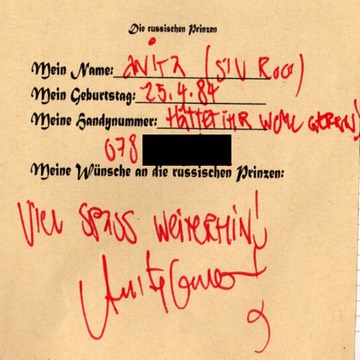 Die russischen Prinzen
Mein Name: ANITA
Mein Geburtstag: 25.4.84
Meine Handynummer: HÄTTET IHR WOHL GERN!)
078
Meine Wünsche an die russischen Prinzen:
VIEL SPASS WEITERHIN!